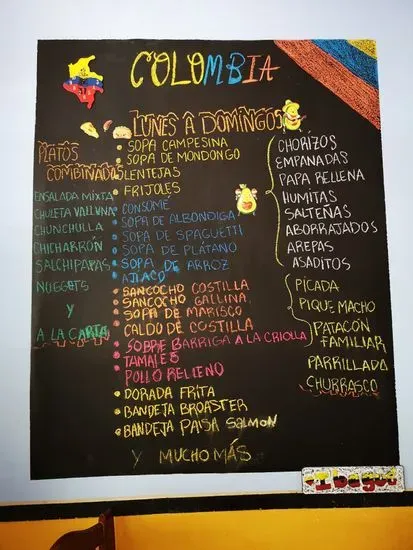 COLOMBIA
LUNES A DOMINGOS
PLATOS
COMBINADOS
ENSALADA MIXTA
CHULETA VALLUNA
CHUNCHULLA
CHICHARRÓN
SALCHIPAPAS
NUGGETS
Y
A LA CARTA
• SOPA CAMPESINA
• SOPA DE MONDONGO
LENTEJAS
• FRIJOLES
• CONSOMÉ
• SOPA DE ALBONDIGA
• SOPA DE SPAGUETTI
• SOPA DE PLATANO
• SOPA DE ARROZ
• AJIACO
• SANCOCHO COSTILLA
• SANCOCHO GALLINA
• SOPA DE MARISCO
• CALDO DE COSTILLA
• SOBRE BARRIGA A LA CRIOLLA
• TAMALES
• POLLO RELLENO
• DORADA FRITA
• BANDEJA BROASTER
• BANDEJA PAISA SALMON
Y MUCHO MÁS
CHORIZOS
EMPANADAS
PAPA RELLENA
HUMITAS
SALTEÑAS
ABORRAJADOS
AREPAS
ASADITOS
PICADA
PIQUE MACHO
PATACÓN
FAMILIAR
PARRILLADA
CHURRASCO
Ibagué